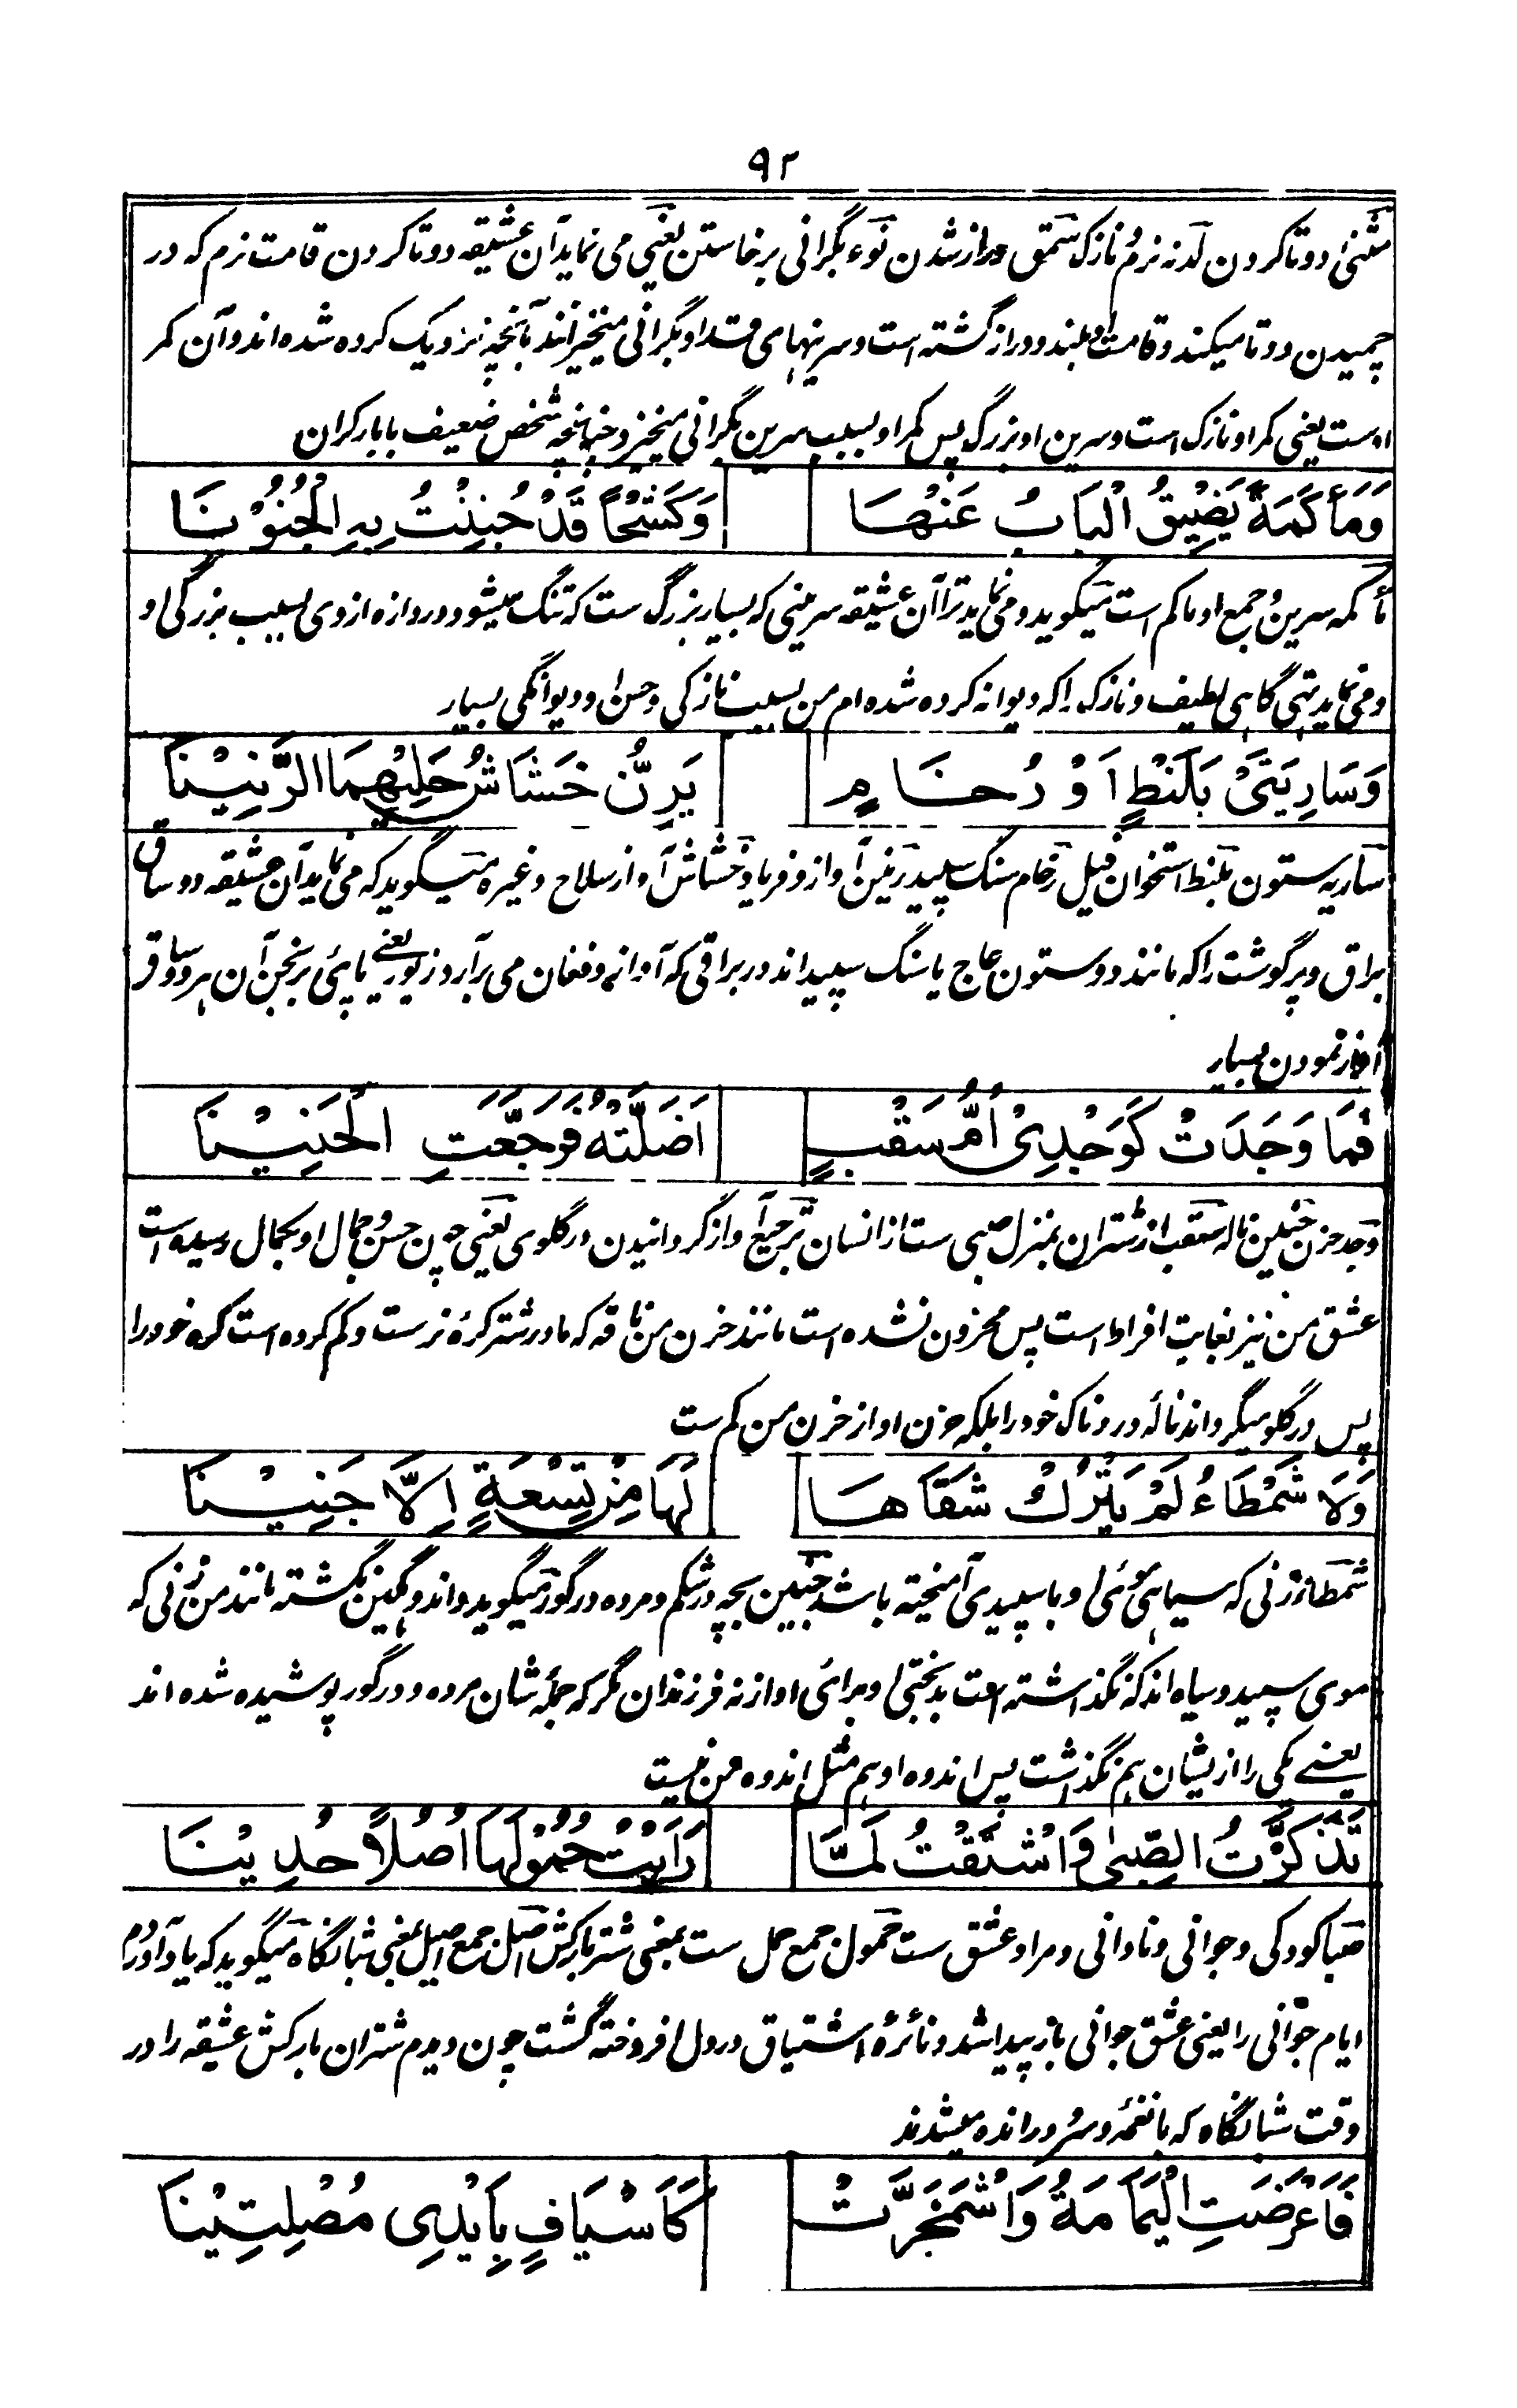 ۹۲
مثنیٰ دوتا کردن لدنه نرم و نازک سمق دراز شدن نوء بگرانی برخاستن یعنی می نماید آن عشیقه دوتا کردن قامت نرم که در
چمیدن دوتا میکند و قامت او بلند و دراز گشته است و سرینهای قد او بگرانی میخیزند بآنچه نزدیک کرده شده اند و آن کمر
اوست یعنی کمر او نازک است و سرین او بزرگ پس کمر او بسبب سرین بگرانی میخیزد چنانچه شخص ضعیف با بار گران
وَمَأْكَمَةً يَضِيْقُ الْبَابُ عَنْهَا وَكَشْحًا قَدْ جُنِنْتُ بِهِ الْجُنُوْنَا
مأکمه سرین و جمع او ماکم است میگوید و می نماید ترا آن عشیقه سرینی که بسیار بزرگ ست که تنگ میشود دروازه از وی بسبب بزرگی او
و می نماید تهی گاهی لطیف و نازک را که دیوانه کرده شده ام من بسبب نازکی و حسن او دیوانگی بسیار
وَسَارِيَتَيْ بَلَنْطٍ اَوْ رُخَامٍ يَرِنُّ خَشَاشُ حَلْيِهِمَا الرَّنِيْنَا
ساریه ستون بلنط استخوان فیل رخام سنگ سپید رنین آواز و فریاد خشاش آواز سلاح و غیره میگوید که می نماید آن عشیقه دو ساق
براق و پر گوشت را که مانند دو ستون عاج یا سنگ سپید اند در براقی که آواز و فغان می برآرد زیور یعنی پای برنجن آن هر دو ساق
آواز نمودن بسیار
فَمَا وَجَدَتْ كَوَجْدِيْ اُمُّ سَقْبٍ اَضَلَّتْهُ فَرَجَّعَتِ الْحَنِيْنَا
وجد حزن حنین ناله سقب از شتران بمنزل صبی ست از انسان ترجیع آواز گردانیدن در گلوی یعنی چون حسن و جمال او بکمال رسیده است
عشق من نیز بغایت افراط است پس محزون نشده است مانند حزن من ناقه که مادر شتر کرهٔ نرست و گم کرده است کره خود را
پس در گلو میگرداند نالهٔ دردناک خود را بلکه حزن او از حزن من کم ست
وَلَا شَمْطَاءُ لَمْ يَتْرُكْ شَقَاهَا لَهَا مِنْ تِسْعَةٍ اِلَّا جَنِيْنَا
شمطاء زنی که سیاهی موی او با سپیدی آمیخته باشد جنین بچه در شکم و مرده در گور میگوید و اندوهگین نگشته مانند من زنی که
موی سپید و سیاه اند که نگذاشته است بدبختی او برای او از نه فرزندان مگر که جمله شان مرده و در گور پوشیده شده اند
یعنے یکی را از یشان هم نگذاشت پس اندوه او هم مثل اندوه من نیست
تَذَكَّرْتُ الصِّبٰى وَاشْتَقْتُ لَمَّا رَاَيْتُ حُمُوْلَهَا اُصُلًا حُدِيْنَا
صبا کودکی و جوانی و نادانی و مراد عشق ست حمول جمع حمل ست بمعنی شتر بارکش اصل جمع اصیل بمعنی شبانگاه میگوید که یاد آوردم
ایام جوانی را یعنی عشق جوانی باز پیدا شد و نائرهٔ اشتیاق در دل افروخته گشت چون دیدم شتران بارکش عشیقه را در
وقت شبانگاه که با نغمه و سرود رانده میشدند
فَاَعْرَضَتِ الْيَمَامَةُ وَاشْمَخَرَّتْ كَاَسْيَافٍ بِاَيْدِيْ مُصْلِتِيْنَا